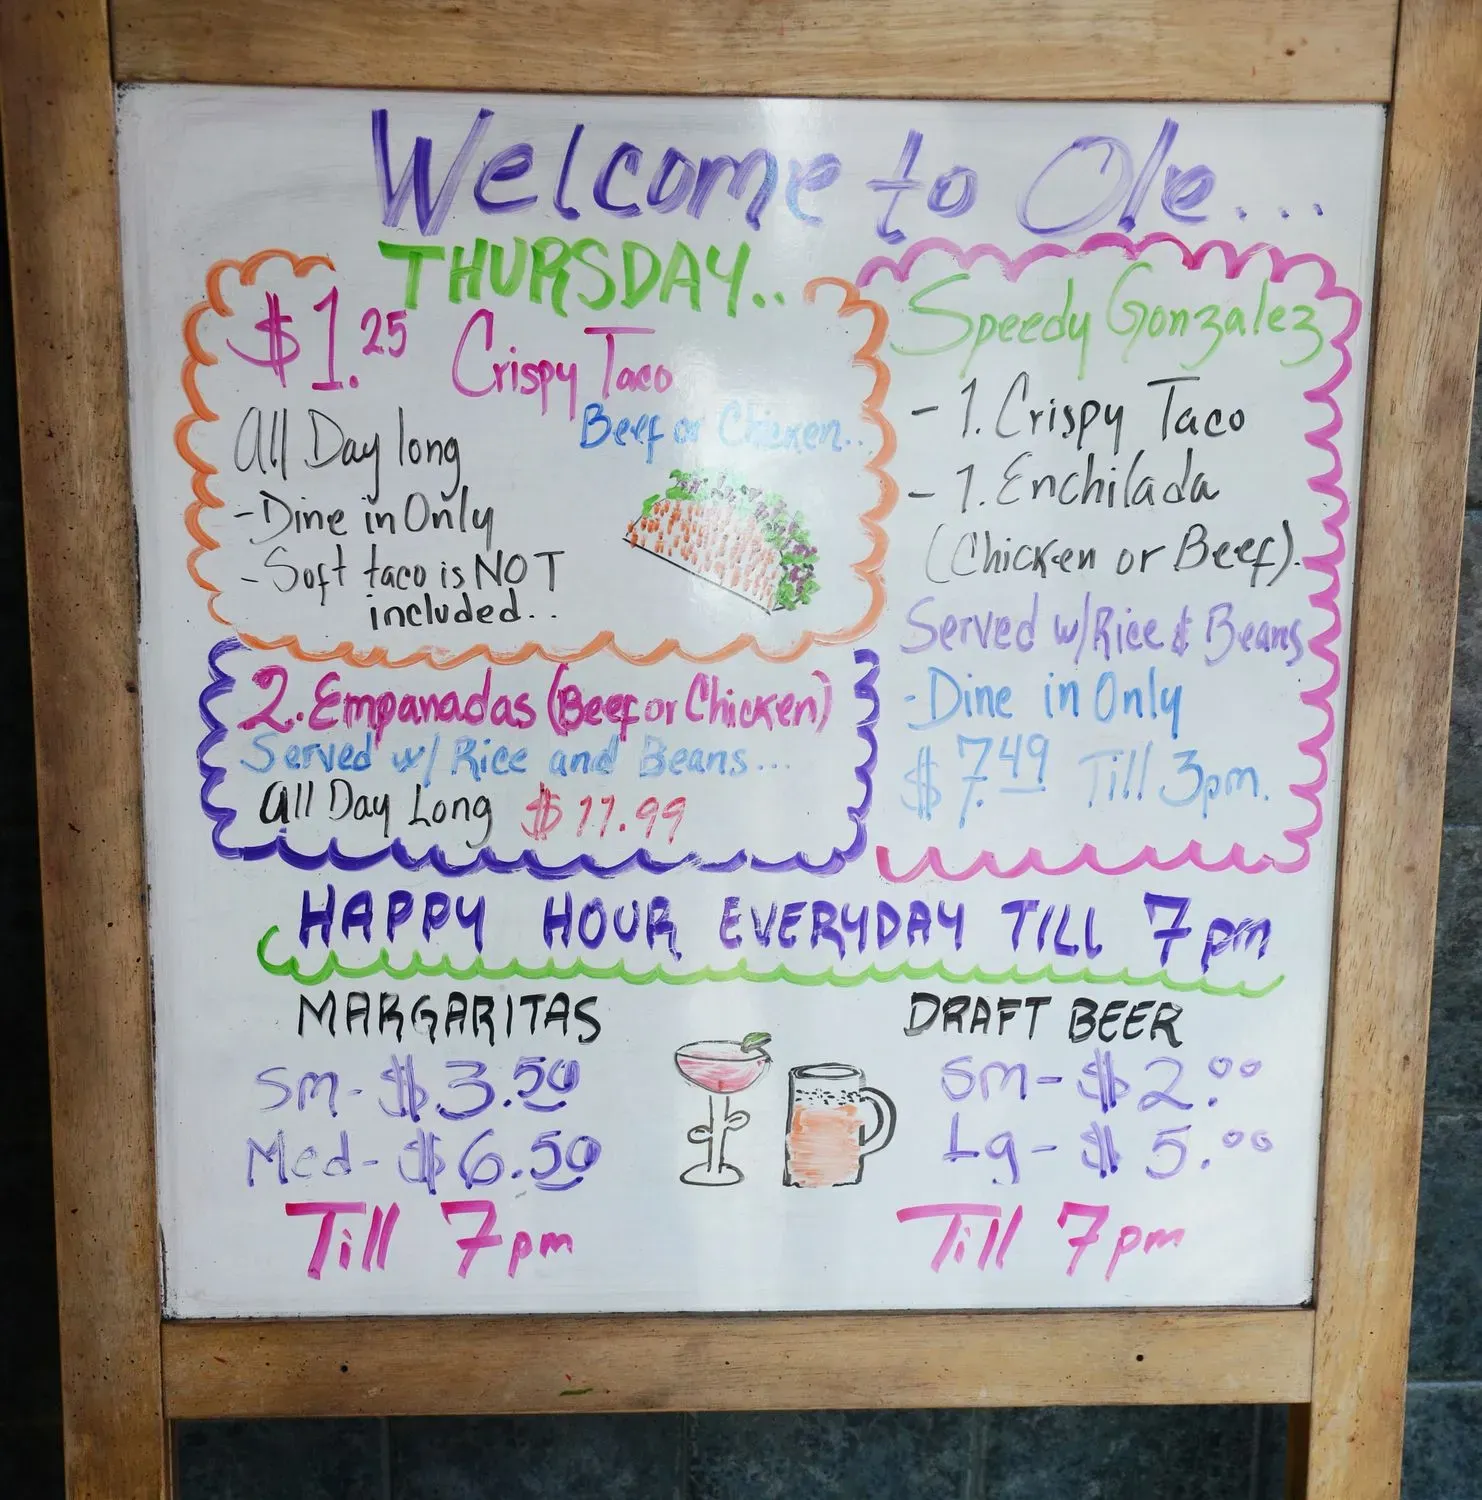 Welcome to Ole...
THURSDAY..
$1.25 Crispy Taco
Beef or Chicken..
All Day long
-Dine in Only
-Soft taco is NOT
included..
2. Empanadas (Beef or Chicken)
Served w/ Rice and Beans...
All Day Long $11.99
Speedy Gonzalez
- 1. Crispy Taco
- 1. Enchilada
(Chicken or Beef).
Served w/Rice & Beans
-Dine in Only
$7.49 Till 3pm.
HAPPY HOUR EVERYDAY TILL 7pm
MARGARITAS
Sm- $3.50
Med- $6.50
Till 7pm
DRAFT BEER
Sm- $2.00
Lg- $5.00
Till 7pm